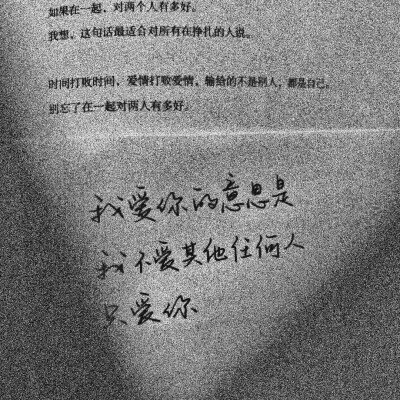 如果在一起，对两个人有多好。
我想，这句话最适合对所有在挣扎的人说。
时间打败时间，爱情打败爱情，输给的不是别人，都是自己。
别忘了在一起对两人有多好。
我爱你的意思是
我不爱其他任何人
只爱你